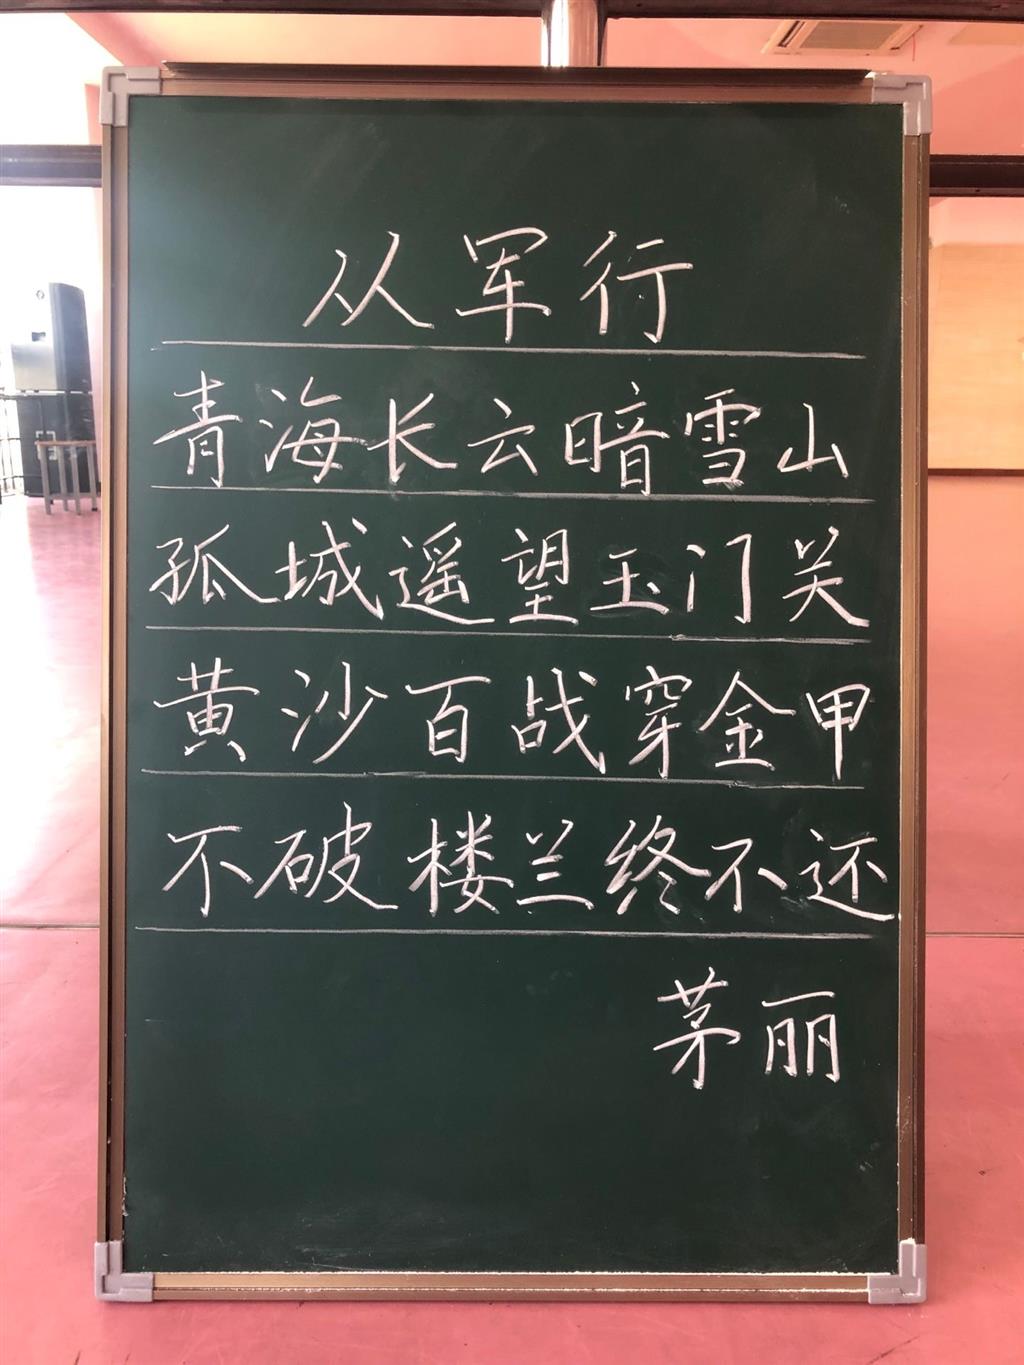 从军行
青海长云暗雪山
孤城遥望玉门关
黄沙百战穿金甲
不破楼兰终不还
茅丽